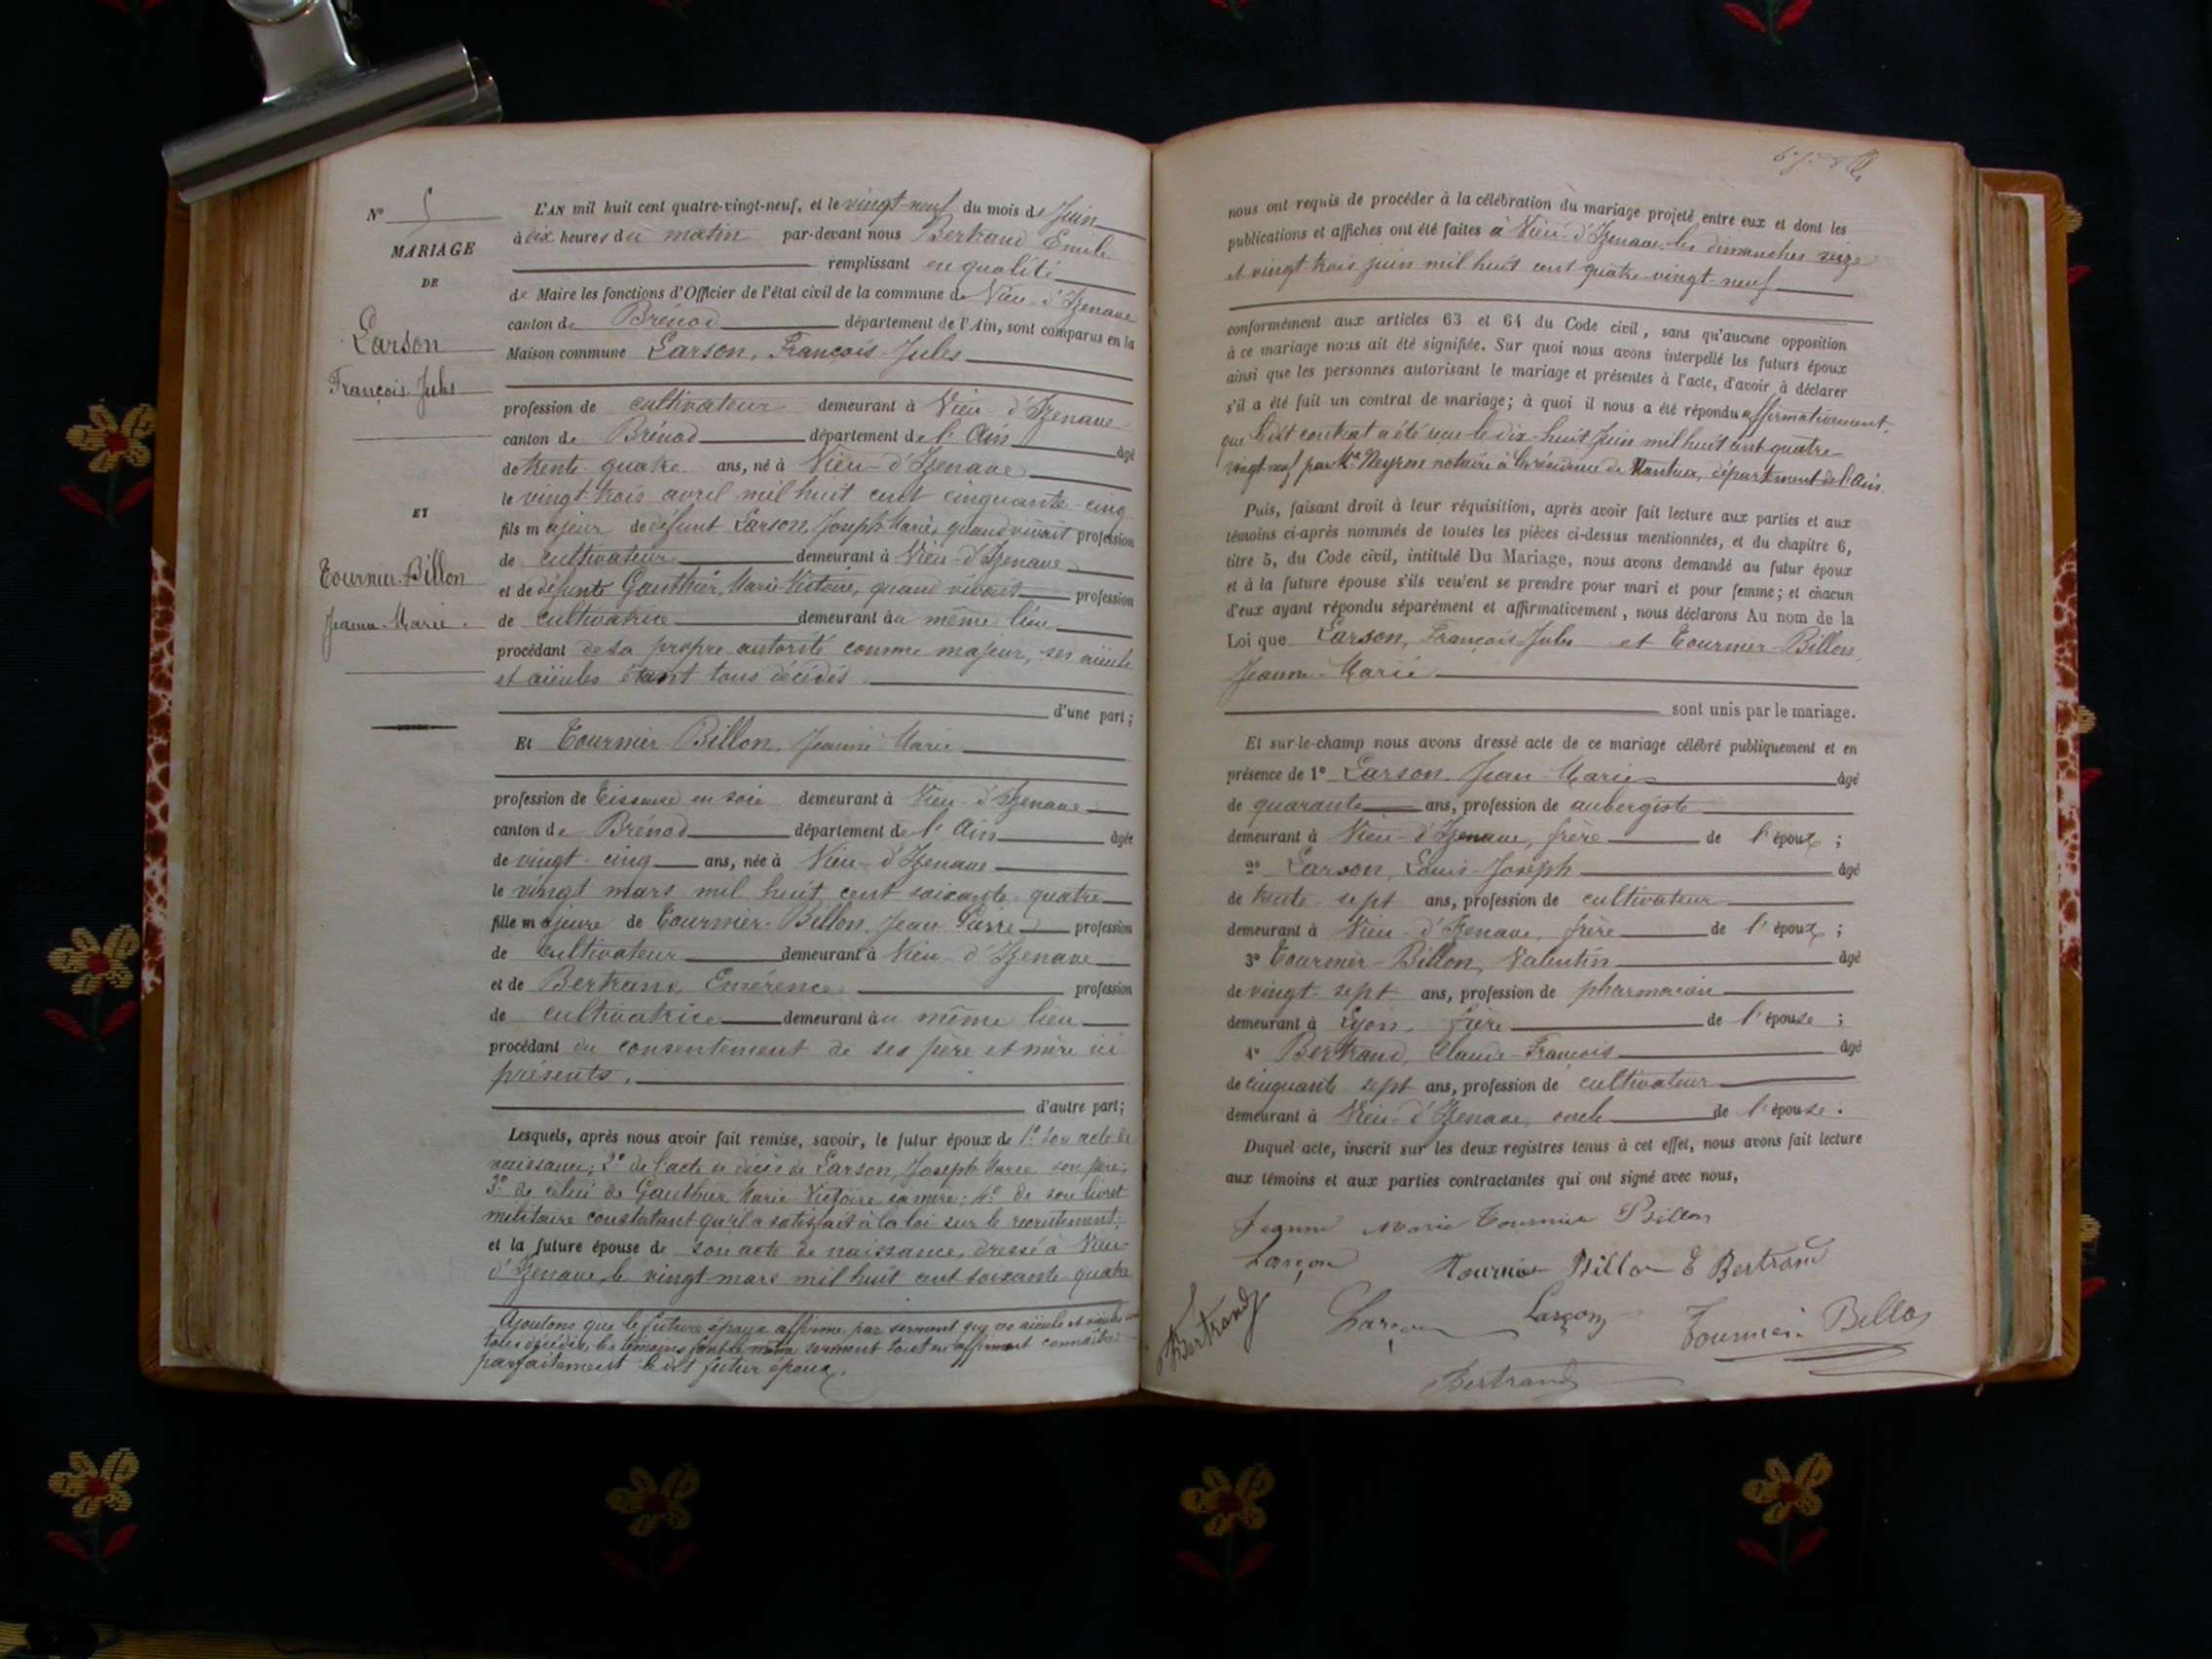 N° 5
MARIAGE
DE
Larson
François Jules
ET
Tournier-Billon
Jeanne-Marie.
L'AN mil huit cent quatre-vingt-neuf, et le vingt-neuf du mois de Juin
à dix heures du matin par-devant nous Bertrand Emile
remplissant en qualité
de Maire les fonctions d'Officier de l'état civil de la commune de Vieu-d'Izenave
canton de Brénod département de l'Ain, sont comparus en la
Maison commune Larson, François-Jules
profession de cultivateur demeurant à Vieu-d'Izenave
canton de Brénod département de l'Ain âgé
de trente-quatre ans, né à Vieu-d'Izenave
le vingt-trois avril mil huit cent cinquante-cinq
fils majeur de défunt Larson, Joseph-Marie, quand vivait profession
de cultivateur demeurant à Vieu-d'Izenave
et de défunte Gauthier, Marie-Victoire, quand vivait profession
de cultivatrice demeurant au même lieu
procédant de sa propre autorité comme majeur, ses aïeuls
et aïeules étant tous décédés.
d'une part;
Et Tournier-Billon, Jeanne-Marie
profession de tisseuse en soie demeurant à Vieu-d'Izenave
canton de Brénod département de l'Ain âgée
de vingt-cinq ans, née à Vieu-d'Izenave
le vingt mars mil huit cent soixante-quatre
fille majeure de Tournier-Billon, Jean Pierre profession
de cultivateur demeurant à Vieu-d'Izenave
et de Bertrand, Emérence profession
de cultivatrice demeurant au même lieu
procédant du consentement de ses père et mère ici
présents.
d'autre part;
Lesquels, après nous avoir fait remise, savoir, le futur époux de 1° son acte de
naissance; 2° de l'acte de décès de Larson, Joseph-Marie son père;
3° de celui de Gauthier Marie-Victoire sa mère; 4° de son livret
militaire constatant qu'il a satisfait à la loi sur le recrutement;
et la future épouse de son acte de naissance, dressé à Vieu-
d'Izenave, le vingt mars mil huit cent soixante-quatre
Ajoutons que le future époux affirme par serment que ses aïeuls et aïeules sont
tous décédés, les témoins font le même serment tout en affirmant connaître
parfaitement le dit futur époux.
nous ont requis de procéder à la célébration du mariage projeté entre eux et dont les
publications et affiches ont été faites à Vieu-d'Izenave, les dimanches seize
et vingt-trois juin mil huit cent quatre-vingt-neuf
conformément aux articles 63 et 64 du Code civil, sans qu'aucune opposition
à ce mariage nous ait été signifiée. Sur quoi nous avons interpellé les futurs époux
ainsi que les personnes autorisant le mariage et présentes à l'acte, d'avoir à déclarer
s'il a été fait un contrat de mariage; à quoi il nous a été répondu affirmativement,
que le dit contrat a été reçu le dix-huit Juin mil huit cent quatre-
vingt-neuf par Me Neyron notaire à la résidence de Nantua, département de l'Ain.
Puis, faisant droit à leur réquisition, après avoir fait lecture aux parties et aux
témoins ci-après nommés de toutes les pièces ci-dessus mentionnées, et du chapitre 6,
titre 5, du Code civil, intitulé Du Mariage, nous avons demandé au futur époux
et à la future épouse s'ils veulent se prendre pour mari et pour femme; et chacun
d'eux ayant répondu séparément et affirmativement, nous déclarons Au nom de la
Loi que Larson, François-Jules et Tournier-Billon,
Jeanne-Marie
sont unis par le mariage.
Et sur-le-champ nous avons dressé acte de ce mariage célébré publiquement et en
présence de 1° Larson, Jean-Marie âgé
de quarante ans, profession de aubergiste
demeurant à Vieu-d'Izenave, frère de l'époux;
2° Larson, Louis-Joseph âgé
de trente-sept ans, profession de cultivateur
demeurant à Vieu-d'Izenave, frère de l'époux;
3° Tournier-Billon, Valentin âgé
de vingt-sept ans, profession de pharmacien
demeurant à Lyon, frère de l'épouse;
4° Bertrand, Claude-François âgé
de cinquante-sept ans, profession de cultivateur
demeurant à Vieu-d'Izenave, oncle de l'épouse.
Duquel acte, inscrit sur les deux registres tenus à cet effet, nous avons fait lecture
aux témoins et aux parties contractantes qui ont signé avec nous,
Jeanne Marie Tournier Billon
Larçon Tournier Billon E Bertrand
Bertrand Larçon Larçon Tournier-Billon
Bertrand